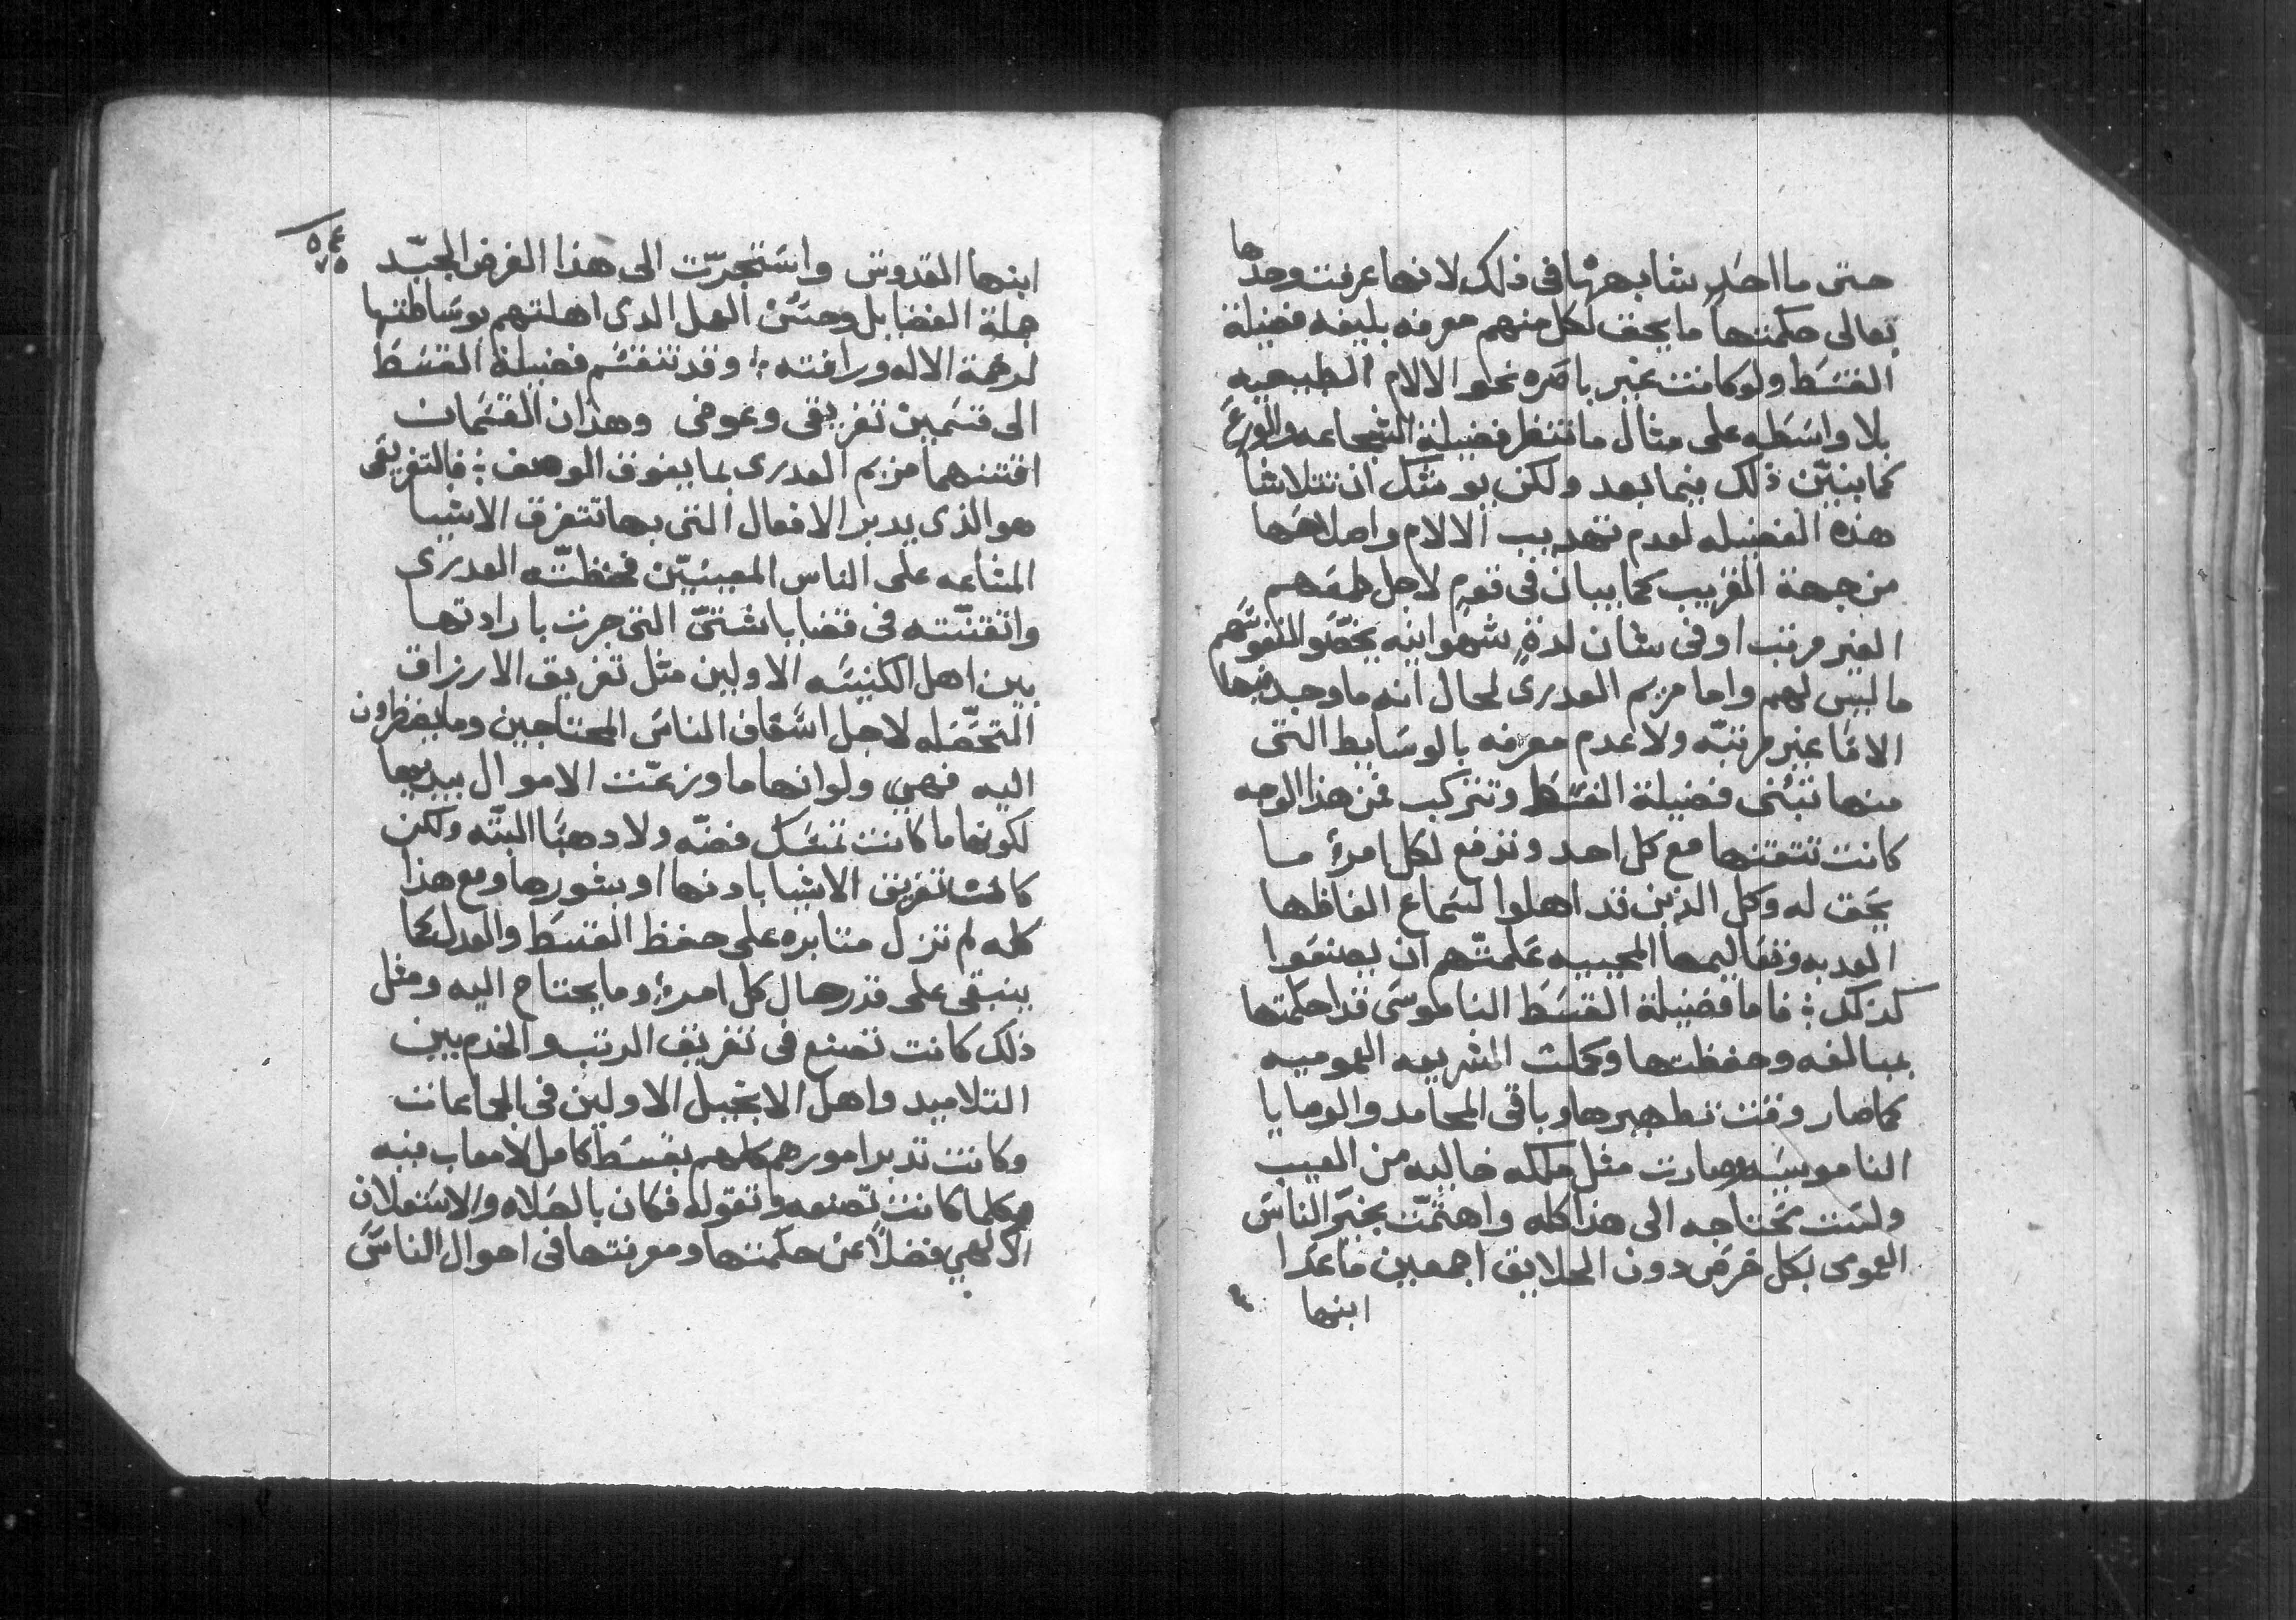 حتى ما احد شابهها فى ذلك لانها عرفت وحدها
تعالى حكمتها ما يحق لكل منهم معرفه بليغه فضيلة
القسط ولو كانت غير باصره نحو الالام الطبيعيه
بلا واسطه على مثال ما تنظر فضيلة الشجاعه والورع
كما نبيّن ذلك فيما بعد ولكن يوشك ان تتلاشا
هذه الفضيله لعدم تهديب الالام واصلاحها
من جهة القريب كما يبان فى قوم لاجل طمعهم
الغير مرتب او فى شان لدةٍ شهوانيه يخصّوا لنفوسهم
ما ليس لهم واما مريم العدرى لحال انه ما وجد فيها
الاماً غير مرتبّه ولا عدم معرفه بالوسايط التى
منها تبُنى فضيلة القسط وتتركب فمن هذا الوجه
كانت تتقنها مع كل احد وتدفع لكل امرءٍ ما
يحق له وكل الذين قد اهلوا لسماع الفاظها
العدبه وتعاليمها المحييه علمتّهم ان يصنعوا
كذلك ؛ فاما فضيلة القسط الناموسى قد احكمتها
بمبالغه وحفظتها وكملت الشريعه العموميه
كما صار وقت تطهيرها وباقى المحامد والوصايا
الناموسيه وصارت مثل ملكه خاليه من العيب
ولست محتاجه الى هذا كله واهتمّت بخير الناس
العومى بكل حرص دون الخلايق اجمعين ما عدا
ابنها
ابنها القدوس واستجرّت الى هذا الغرض الجيّد
جملة الفضايل وحسُن العمل الدى اهلتهم بوساطتها
لرحمة الاله ورافته ؛ وقد تنقسم فضيلة القسط
الى قسمين تفريقى وعوضى وهذان القسمان
اقتنهما مريم العدرى بما يفوق الوصف ؛ فالتفريقى
هو الذى يدبر الافعال التى بها تتفرق الاشيا
المشاعه على الناس المعينيّن فحفظتّه العدرى
واتقنتّه فى قضايا شتىّ التى جرت بارادتها
بين اهل الكنيسه الاولين مثل تفريق الارزاق
التحصله لاجل اسعاف الناس المحتاجين وما يضطرون
اليه فهى ولو انها ما وزعّت الاموال بيديها
لكونها ما كانت تمسك فضّه ولا دهبًا البتّه ولكن
كانت تفريق الاشيا بادنها او بشورها ومع هذا
كله لم تزل متابره على حفظ القسط والعدل كما
ينبغى على قدر حال كل امرءٍ وما يحتاج اليه ومثل
ذلك كانت تصنع فى تفريق الرتب والخدم بين
التلاميد واهل الانجيل الاولين فى الجماعات
وكانت تدبر امورهم كلهم بقسط كامل لا معاب فيه
وكلما كانت تصنعه وتقوله فكان بالصلاه والاستعلان
الالهي فضلاً عن حكمتها ومعرفتها فى احوال الناس